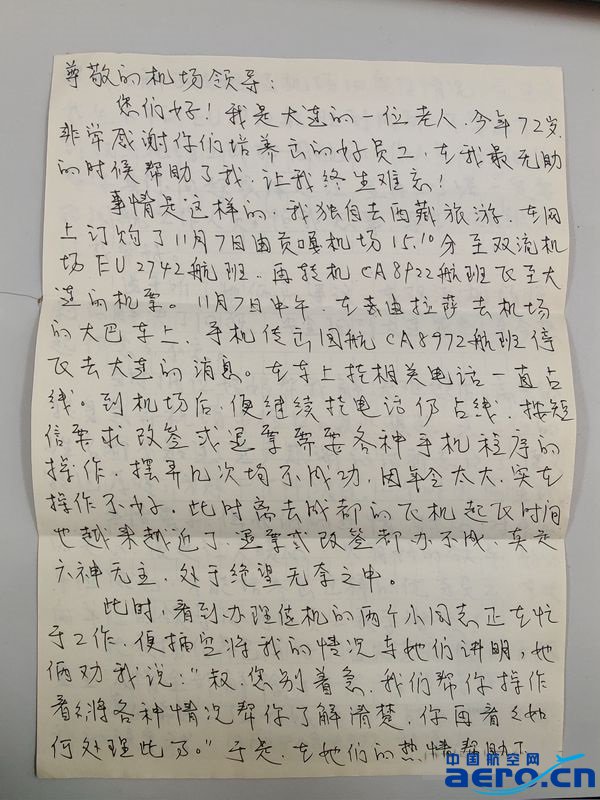 尊敬的机场领导：
您们好！我是大连的一位老人，今年72岁
非常感谢你们培养出的好员工，在我最无助
的时候帮助了我，让我终生难忘！
事情是这样的，我独自去西藏旅游，在网
上订购了11月7日由贡嘎机场15.10分至双流机
场EU2742航班，再转机CA8922航班飞至大
连的机票。11月7日中午，在去由拉萨去机场
的大巴车上，手机传出国航CA8972航班停
飞去大连的消息。在车上挂相关电话一直占
线。到机场后，便继续挂电话仍占线，按短
信要求改签或退票需要各种手机程序的
操作，摆弄几次均不成功，因年令太大，实在
操作不好。此时离去成都的飞机起飞时间
也越来越近了，退票或改签都办不成，真是
六神无主，处于绝望无奈之中。
此时，看到办理值机的两个小同志正在忙
于工作，便插空将我的情况与她们讲明，她
俩劝我说："叔，您别着急，我们帮你操作
看看将各种情况帮你了解清楚，你再看看如
何处理此事。"于是，在她们的热情帮助下
中国航空网
aero.cn